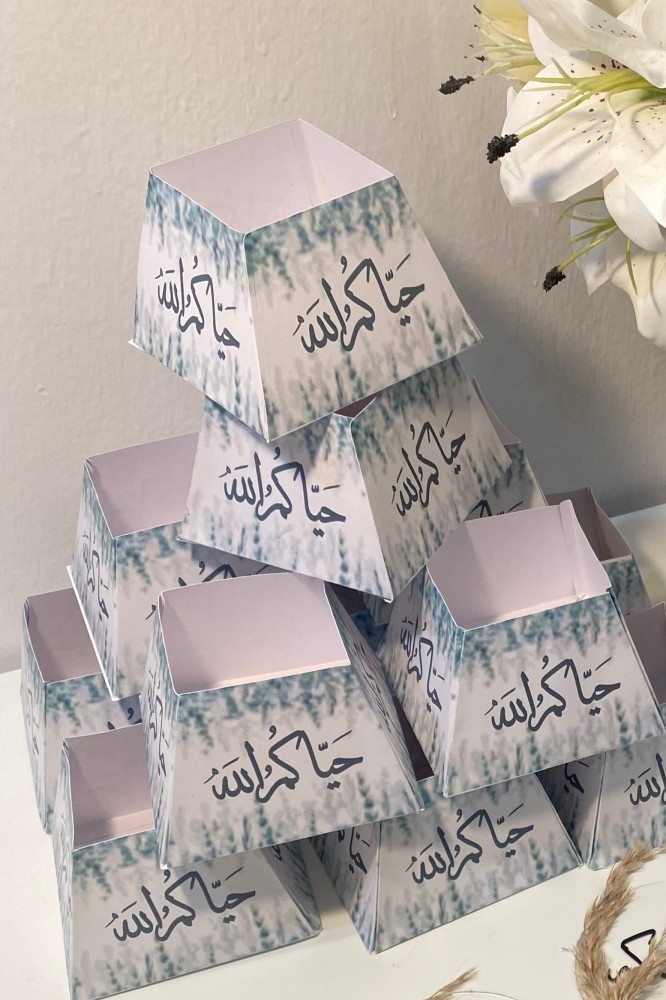 حيّاكم الله
حيّاكم الله
حيّاكم الله
حيّاكم الله
حيّاكم الله
حيّاكم الله
حيّاكم الله
حيّاكم الله
حيّاكم الله